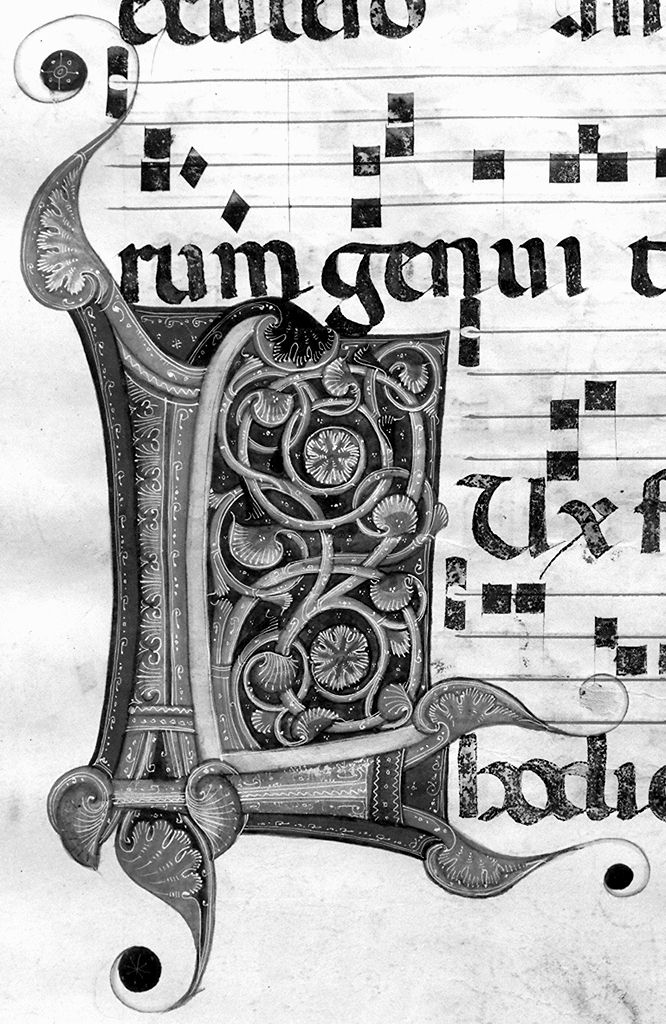 ex utero
rum genui t
Lux f
hodie